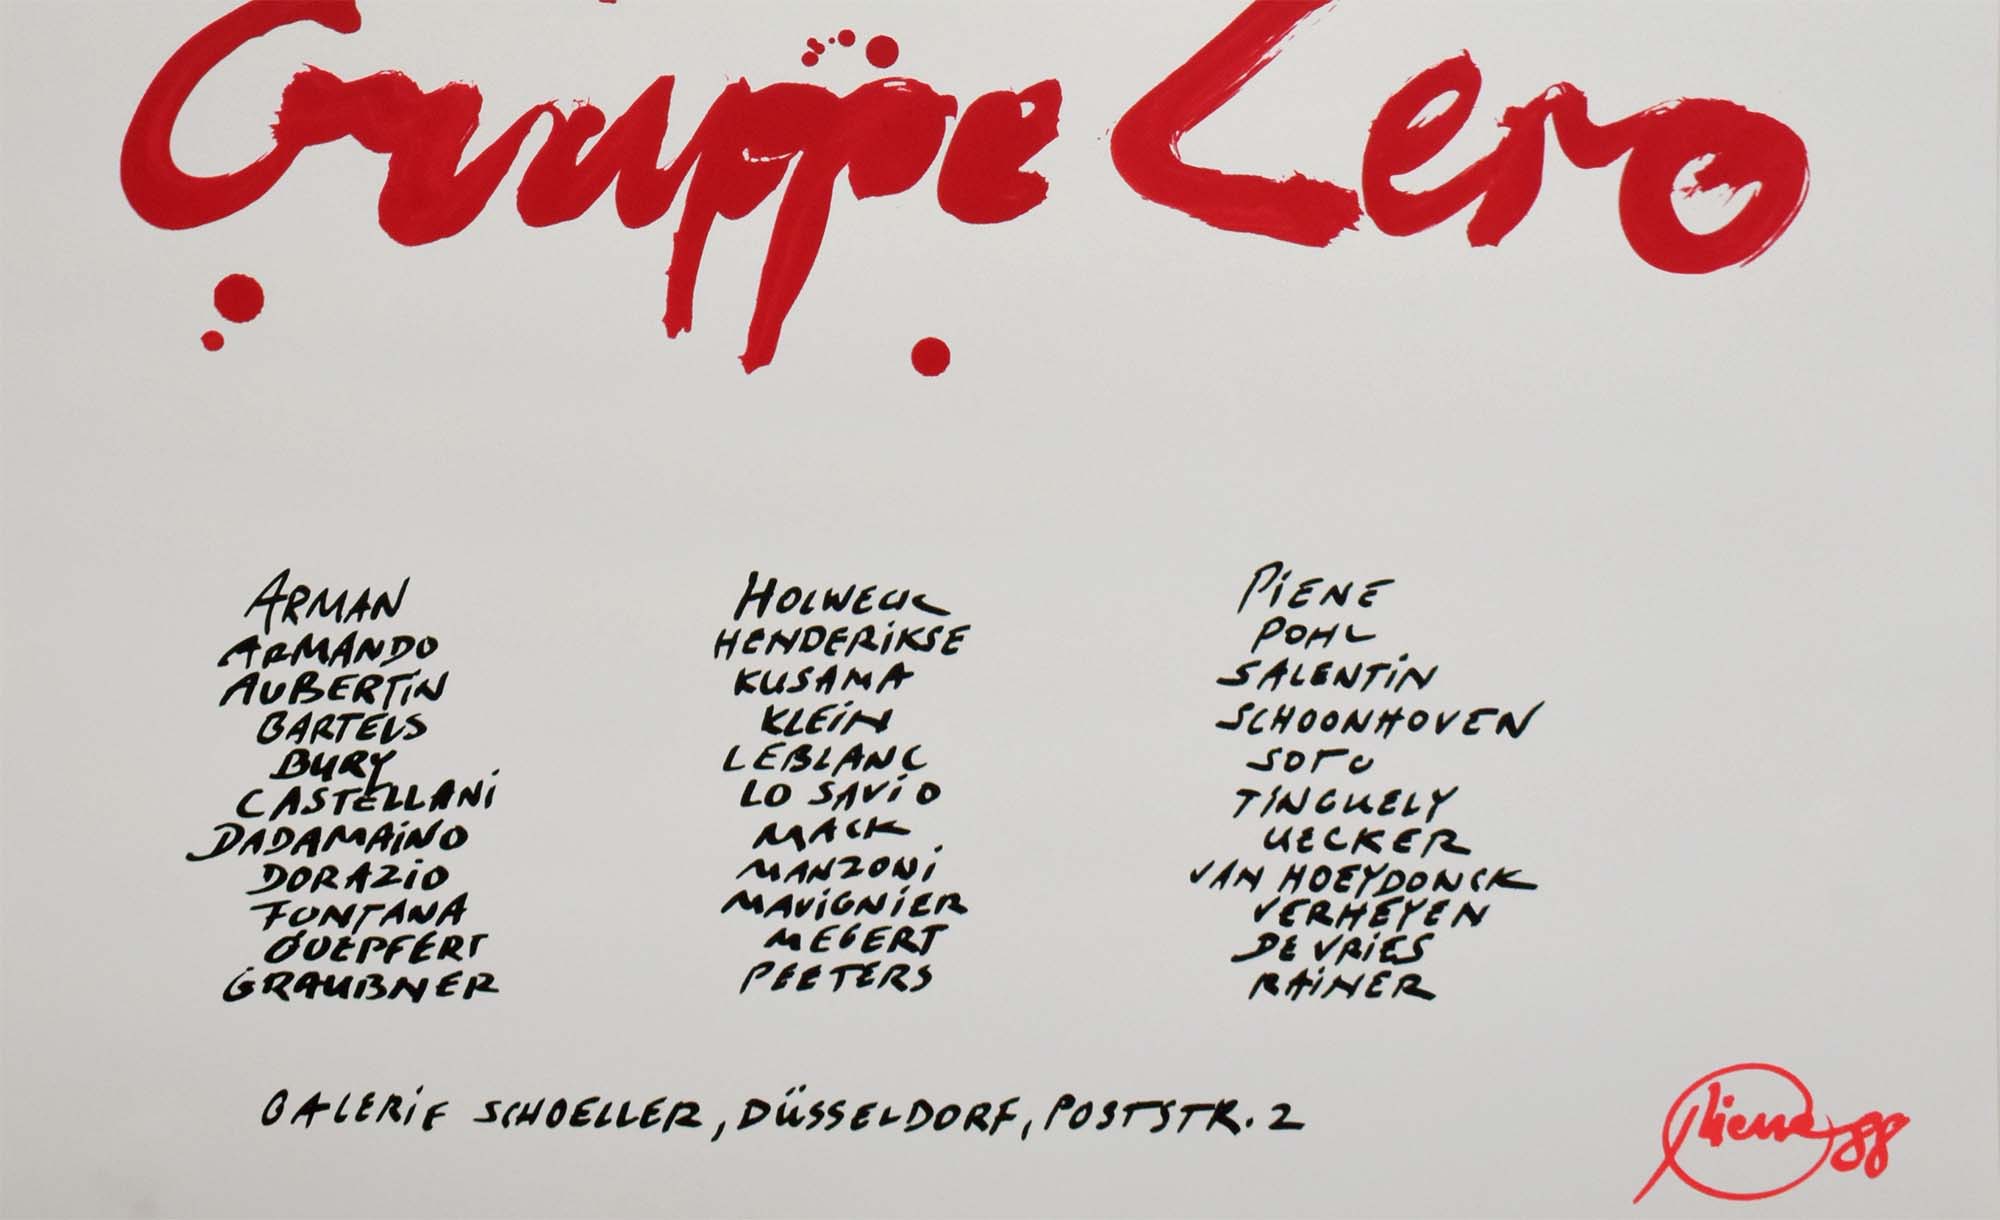 Gruppe Zero
ARMAN
ARMANDO
AUBERTiN
BARTELS
BURY
CASTELLANi
DADAMAiNO
DORAZiO
FONTANA
GOEPFERT
GRAUBNER
HOLWECK
HENDERiKSE
KUSAMA
KLEiN
LEBLANC
LO SAViO
MACK
MANZONi
MAViGNiER
MEGERT
PEETERS
PiENE
POHL
SALENTiN
SCHOONHOVEN
SOTO
TiNGUELY
UECKER
VAN HOEYDONCK
VERHEYEN
DE VRiES
RAiNER
GALERiE SCHOELLER, DÜSSELDORF, POSTSTR. 2
Piene 88